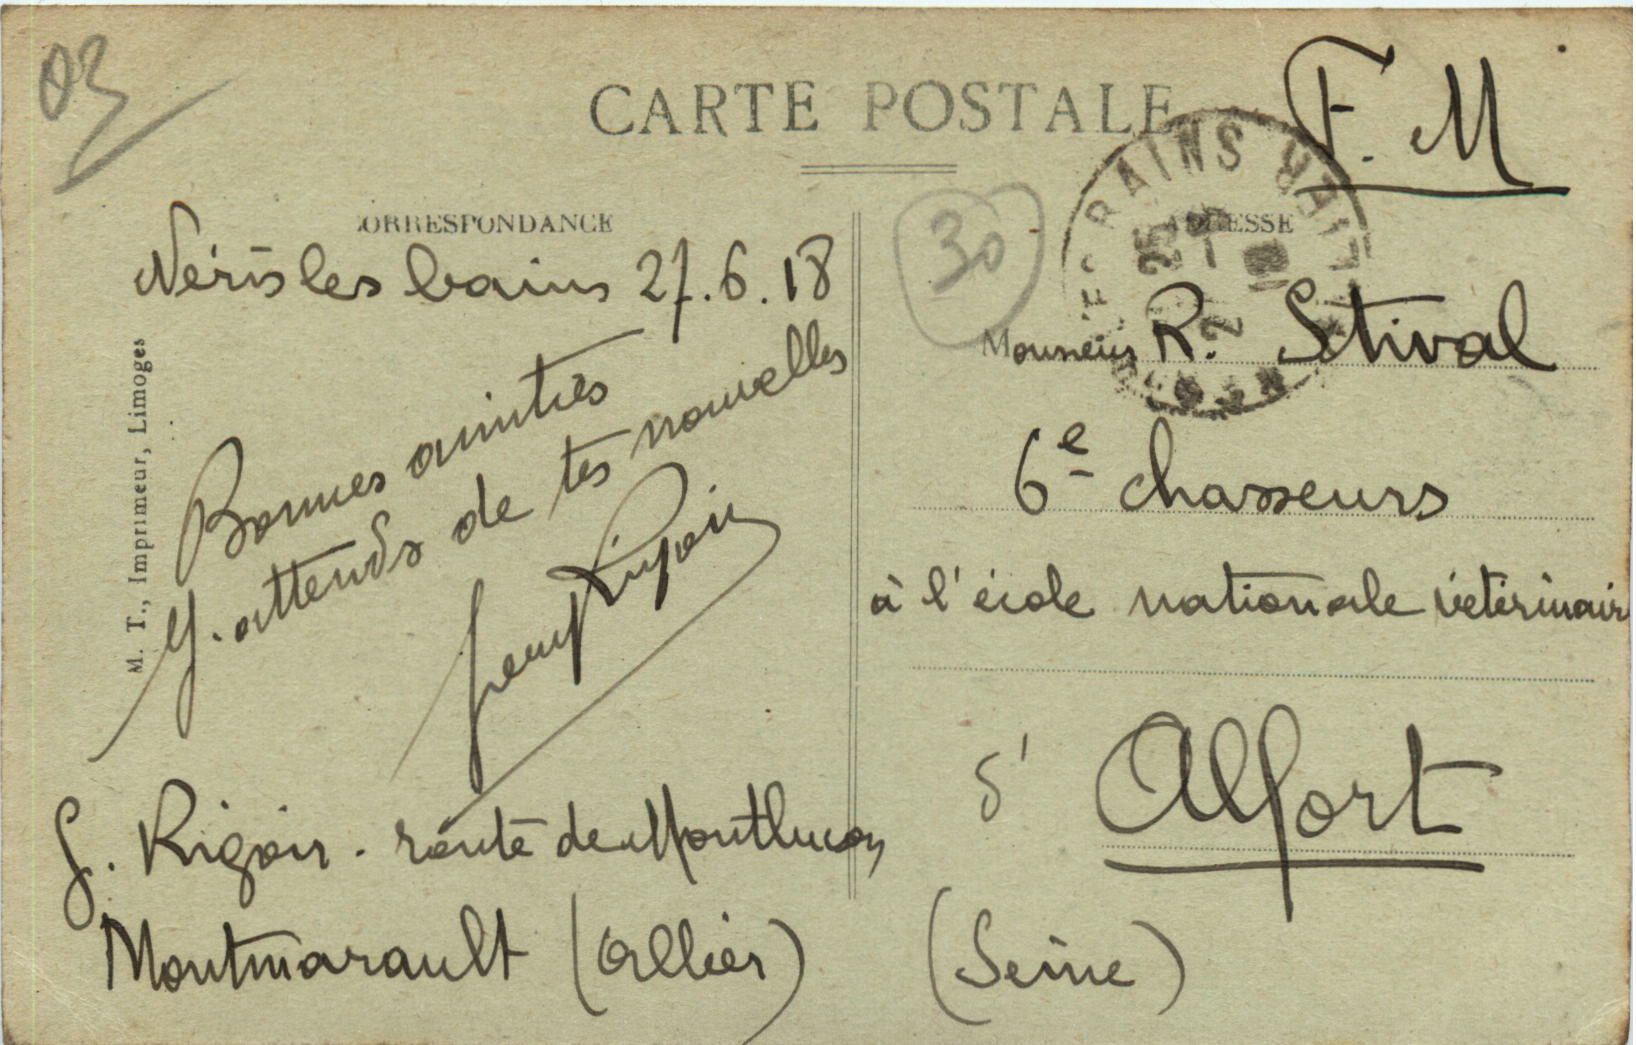 03
CARTE POSTALE
F. M
CORRESPONDANCE
ADRESSE
30
Néris les bains 27.6.18
Bonnes amitiés
J. attends de tes nouvelles
Rigoir
G. Rigoir - route de Montlucon
Montmarault (Allier)
M. T., Imprimeur, Limoges
Monsieur R. Stival
6e chasseurs
à l'école nationale vétérinair
d' Alfort
(Seine)